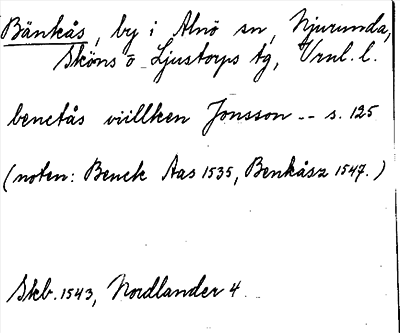 Bänkås, by i Alnö sn, Njurunda,
Sköns o Ljustorps tg, Vrnl. l.
benctås viillken Jonsson -- s. 125
(noten: Benck Aas 1535, Benkåsz 1547.)
Skb. 1543, Nordlander 4.